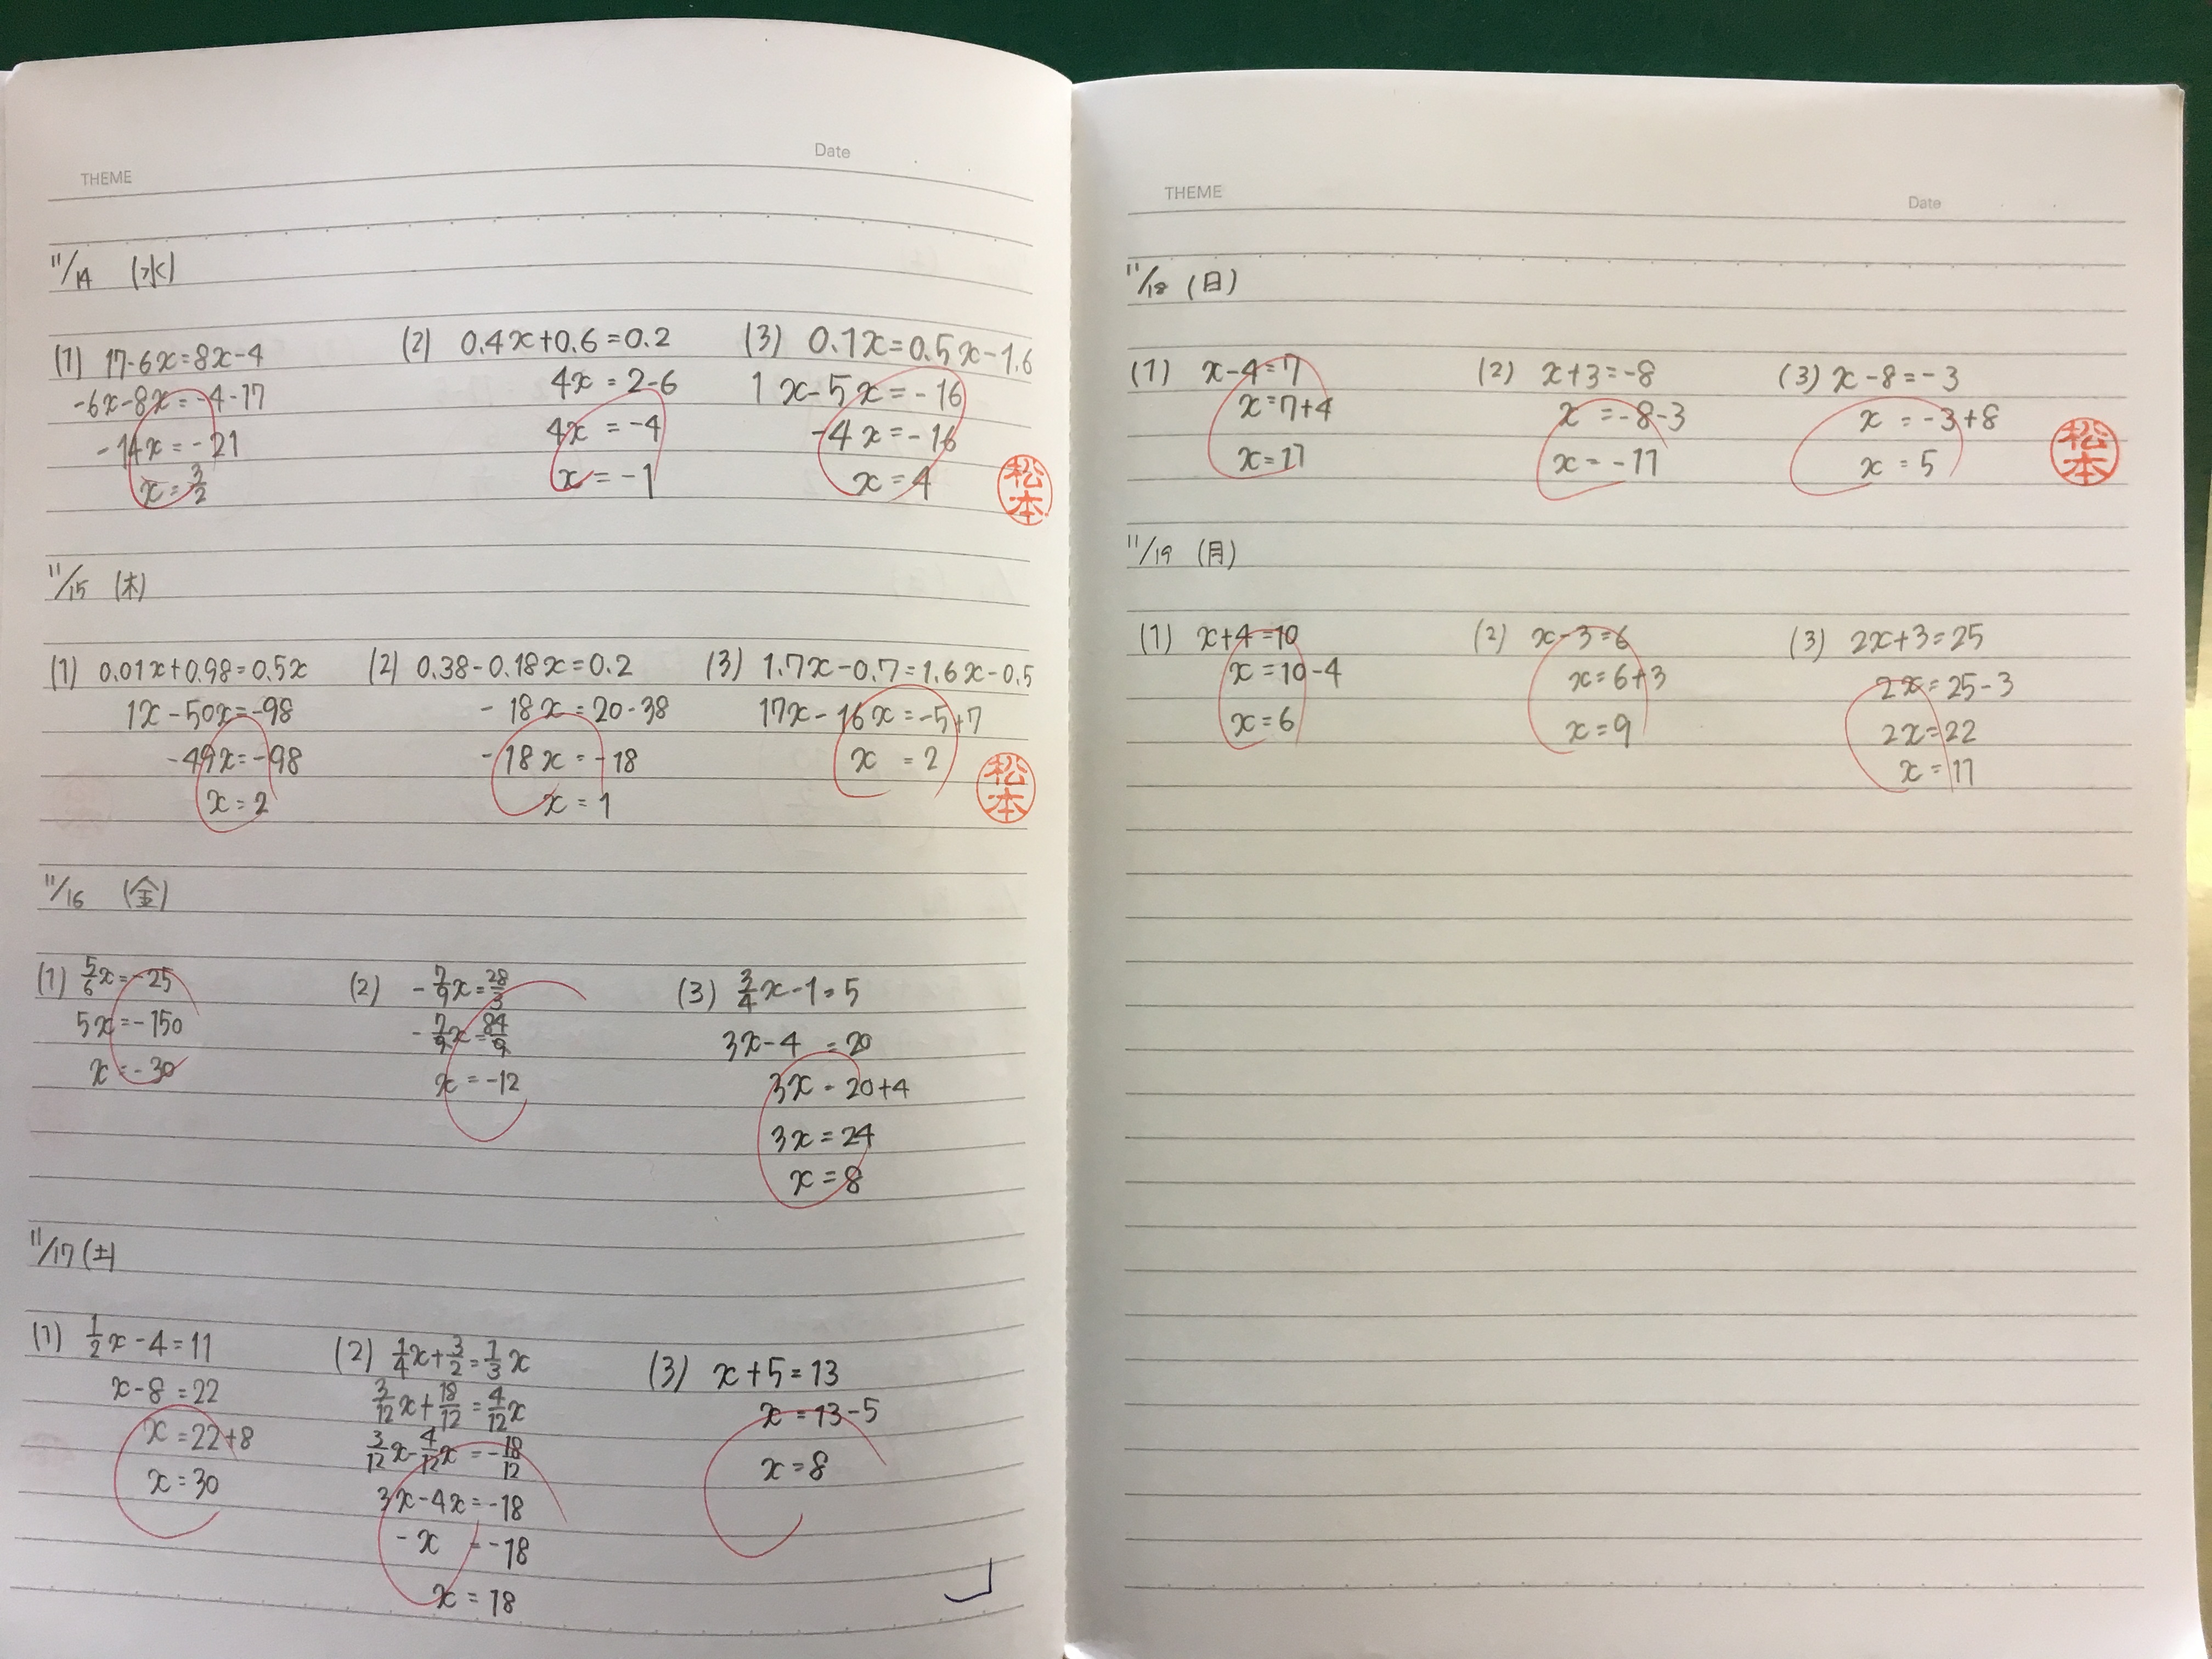 THEME
Date
11/14 (水)
(1) 17-6x=8x-4
-6x-8x=-4-17
-14x=-21
x=3/2
(2) 0.4x+0.6=0.2
4x=2-6
4x=-4
x=-1
(3) 0.1x=0.5x-1.6
1x-5x=-16
-4x=-16
x=4
松本
11/15 (木)
(1) 0.01x+0.98=0.5x
1x-50x=-98
-49x=-98
x=2
(2) 0.38-0.18x=0.2
-18x=20-38
-18x=-18
x=1
(3) 1.7x-0.7=1.6x-0.5
17x-16x=-5+7
x=2
松本
11/16 (金)
(1) 5/6x=-25
5x=-150
x=-30
(2) -7/9x=28/3
-7/9x=84/9
x=-12
(3) 3/4x-1=5
3x-4=20
3x=20+4
3x=24
x=8
11/17 (土)
(1) 1/2x-4=11
x-8=22
x=22+8
x=30
(2) 1/4x+3/2=1/3x
3/12x+18/12=4/12x
3/12x-4/12x=-18/12
3x-4x=-18
-x=-18
x=18
(3) x+5=13
x=13-5
x=8
THEME
Date
11/18 (日)
(1) x-4=7
x=7+4
x=11
(2) x+3=-8
x=-8-3
x=-11
(3) x-8=-3
x=-3+8
x=5
松本
11/19 (月)
(1) x+4=10
x=10-4
x=6
(2) x-3=6
x=6+3
x=9
(3) 2x+3=25
2x=25-3
2x=22
x=11